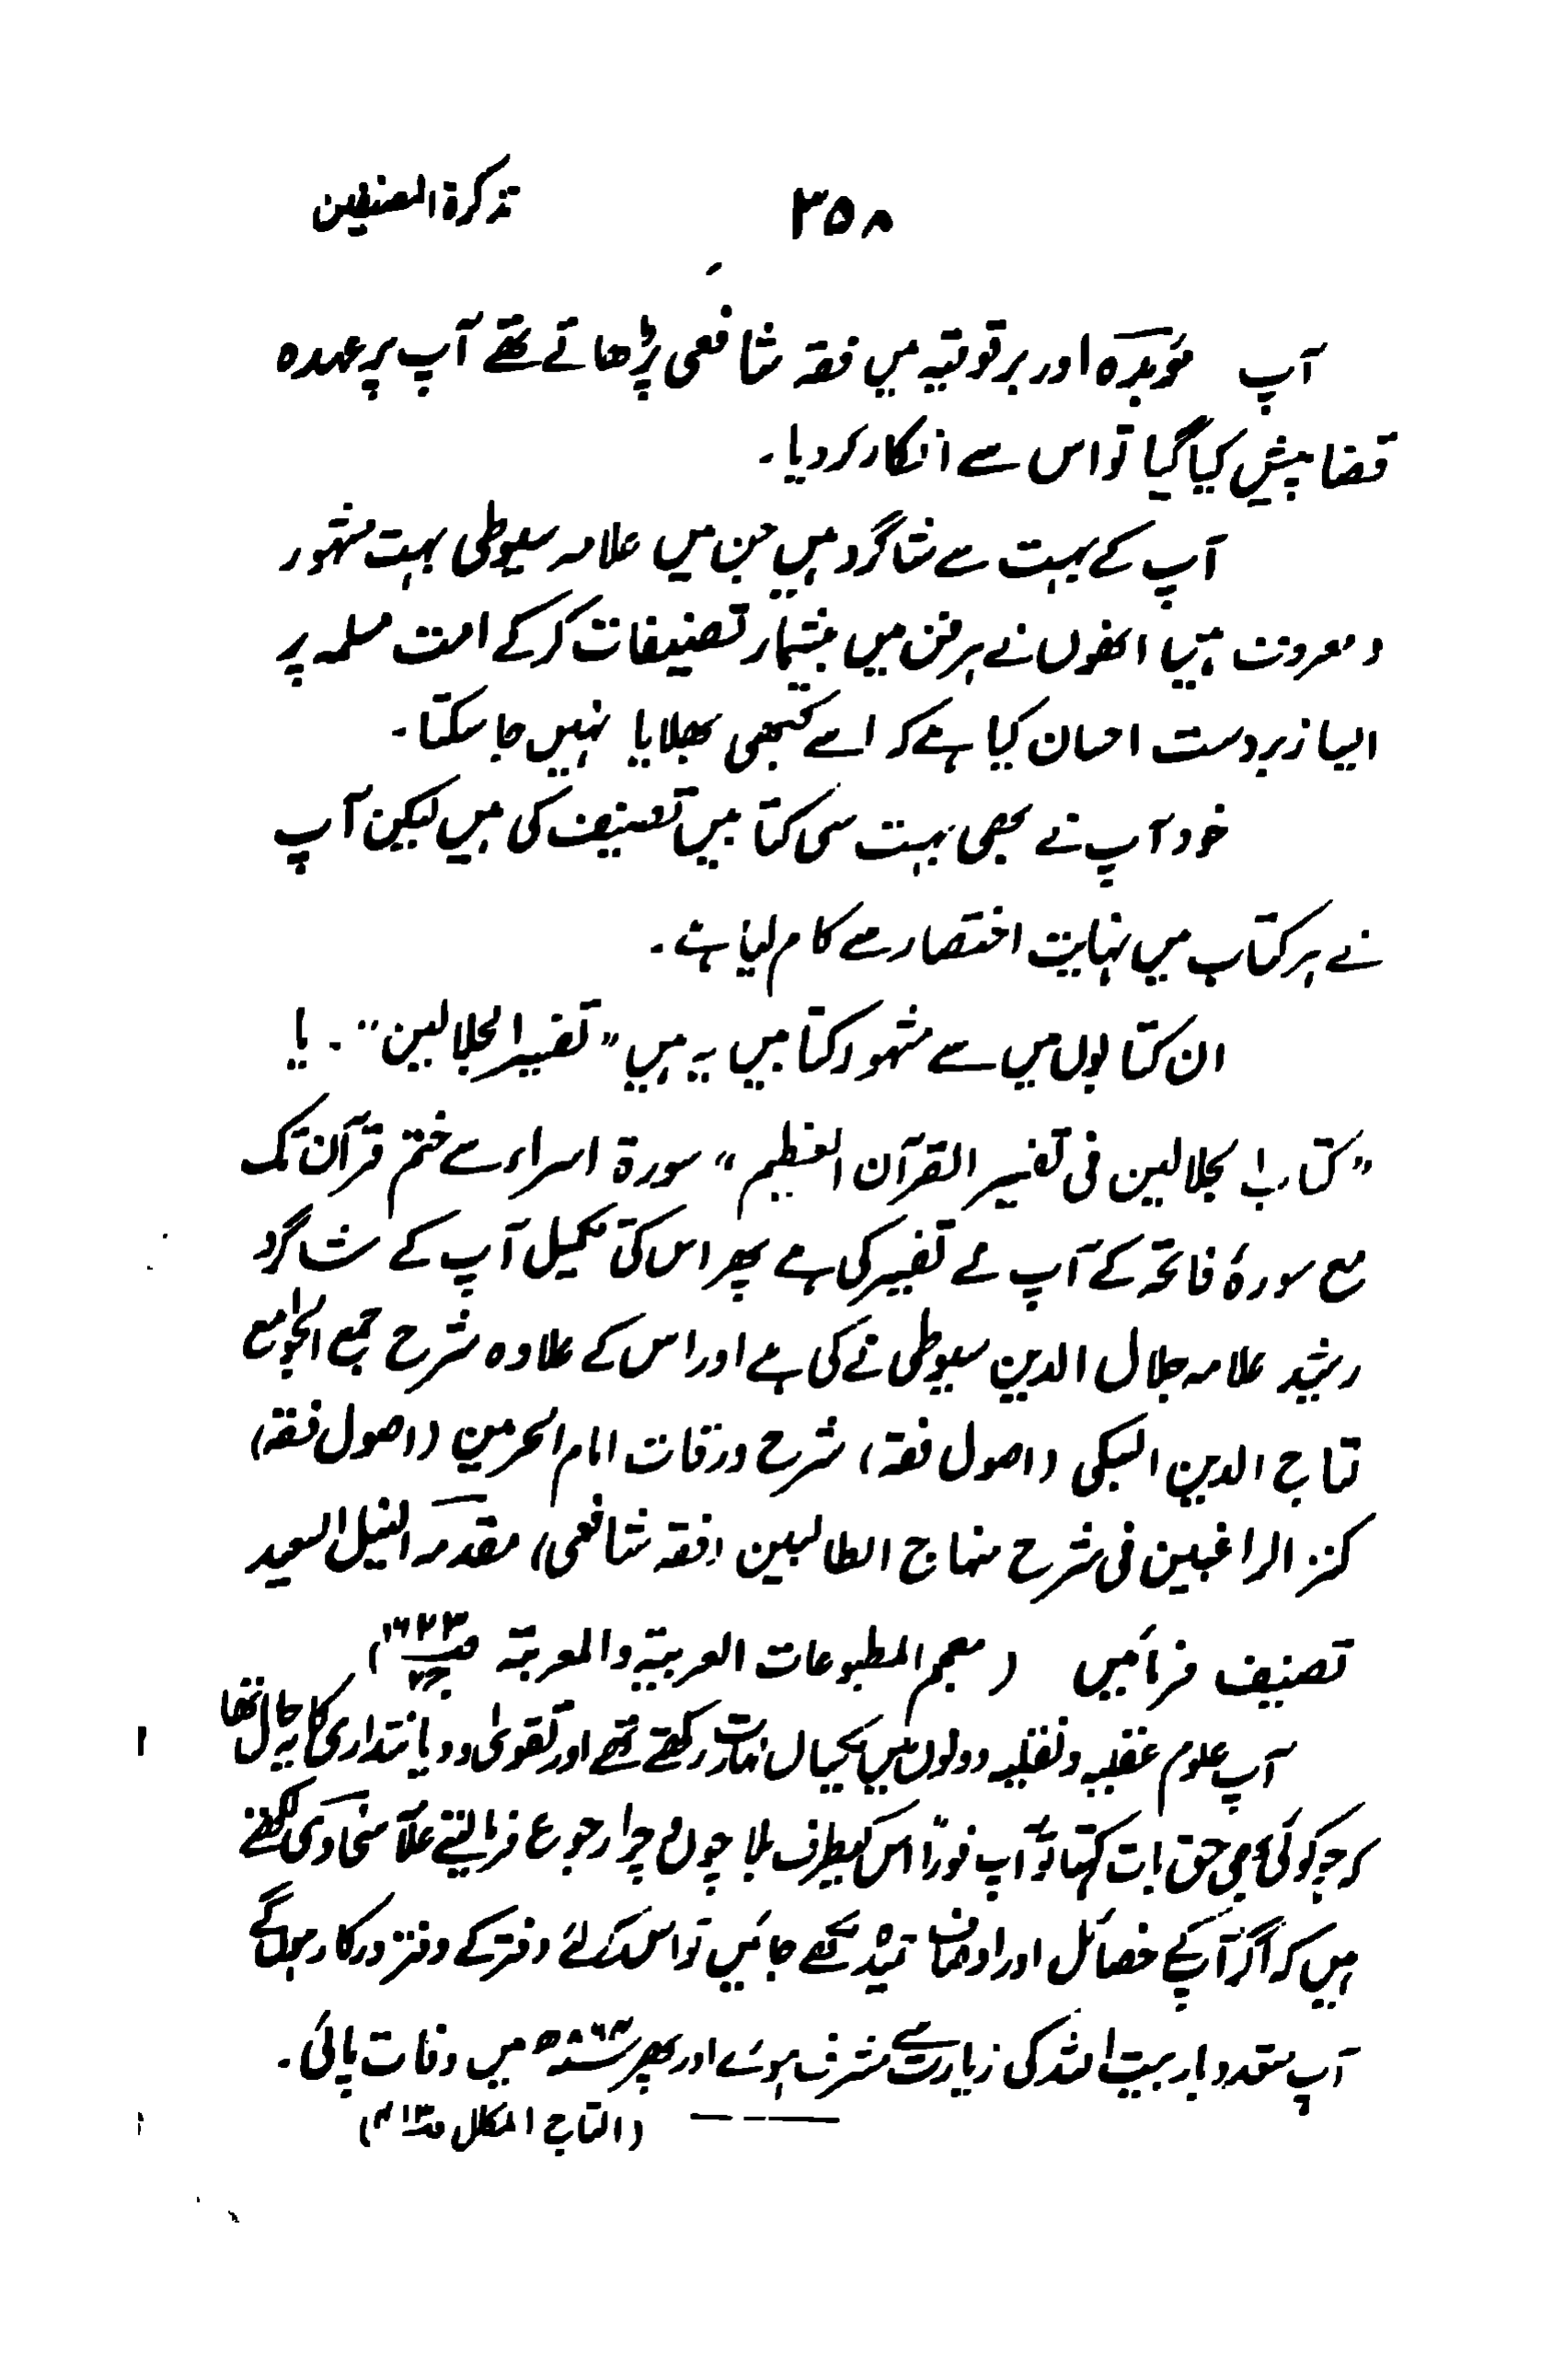 ۳۵۸ تذکرۃ المصنفین
آپ مؤیدہ اور برقوقیہ میں فقہ شافعی پڑھاتے تھے آپ پر عہدہ
قضا پیش کیا گیا تو اس سے انکار کر دیا۔
آپ کے بہت سے شاگرد ہیں جن میں علامہ سیوطی بہت مشہور
و معروف ہیں انھوں نے ہر فن میں بیشمار تصنیفات کر کے امت مسلمہ پر
ایسا زبردست احسان کیا ہے کہ اسے کبھی بھلایا نہیں جا سکتا۔
خود آپ نے بھی بہت سی کتابیں تصنیف کی ہیں لیکن آپ
نے ہر کتاب میں نہایت اختصار سے کام لیا ہے۔
ان کتابوں میں سے مشہور کتابیں یہ ہیں "تفسیر الجلالین"۔ یا
"کتاب الجلالین فی تفسیر القرآن العظیم" سورۃ اسراء سے ختم قرآن تک
مع سورۂ فاتحہ کے آپ نے تفسیر کی ہے پھر اس کی تکمیل آپ کے شاگرد
رشید علامہ جلال الدین سیوطی نے کی ہے اور اس کے علاوہ شرح جمع الجوامع
تاج الدین السبکی (اصول فقہ) شرح ورقات امام الحرمین (اصول فقہ)
کنز الراغبین فی شرح منہاج الطالبین (فقہ شافعی) مقدمہ النیل السعید
تصنیف فرمائیں (معجم المطبوعات العربیۃ والمعربۃ ۱۶۲۳)
آپ علوم عقلیہ و نقلیہ دونوں میں یکساں مہارت رکھتے تھے اور تقویٰ و دیانتداری کا یہ حال تھا
کہ جو کوئی بھی حق بات کہتا تو آپ فوراً اس کیطرف بلا چوں و چرا رجوع فرما لیتے علامہ سخاوی لکھتے
ہیں کہ اگر آپکے خصائل اور اوصاف لکھے جائیں تو اس کے لئے دفتر کے دفتر درکار ہوں گے
آپ متعدد بار بیت اللہ کی زیارت سے مشرف ہوئے اور پھر ۸۶۴ھ میں وفات پائی۔
(التاج المکلل)